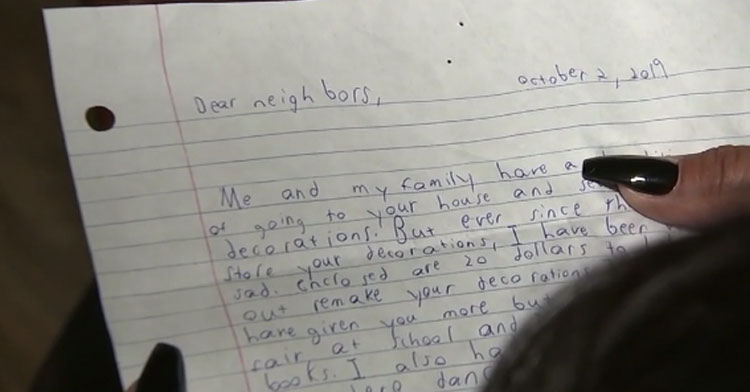 October 2, 2019
Dear neighbors,
Me and my family have a
of going to your house and
decorations. But ever since
stole your decorations, I have been
sad. enclosed are 20 dollars to
out remake your decorations
have given you more but
fair, at school and
books. I also